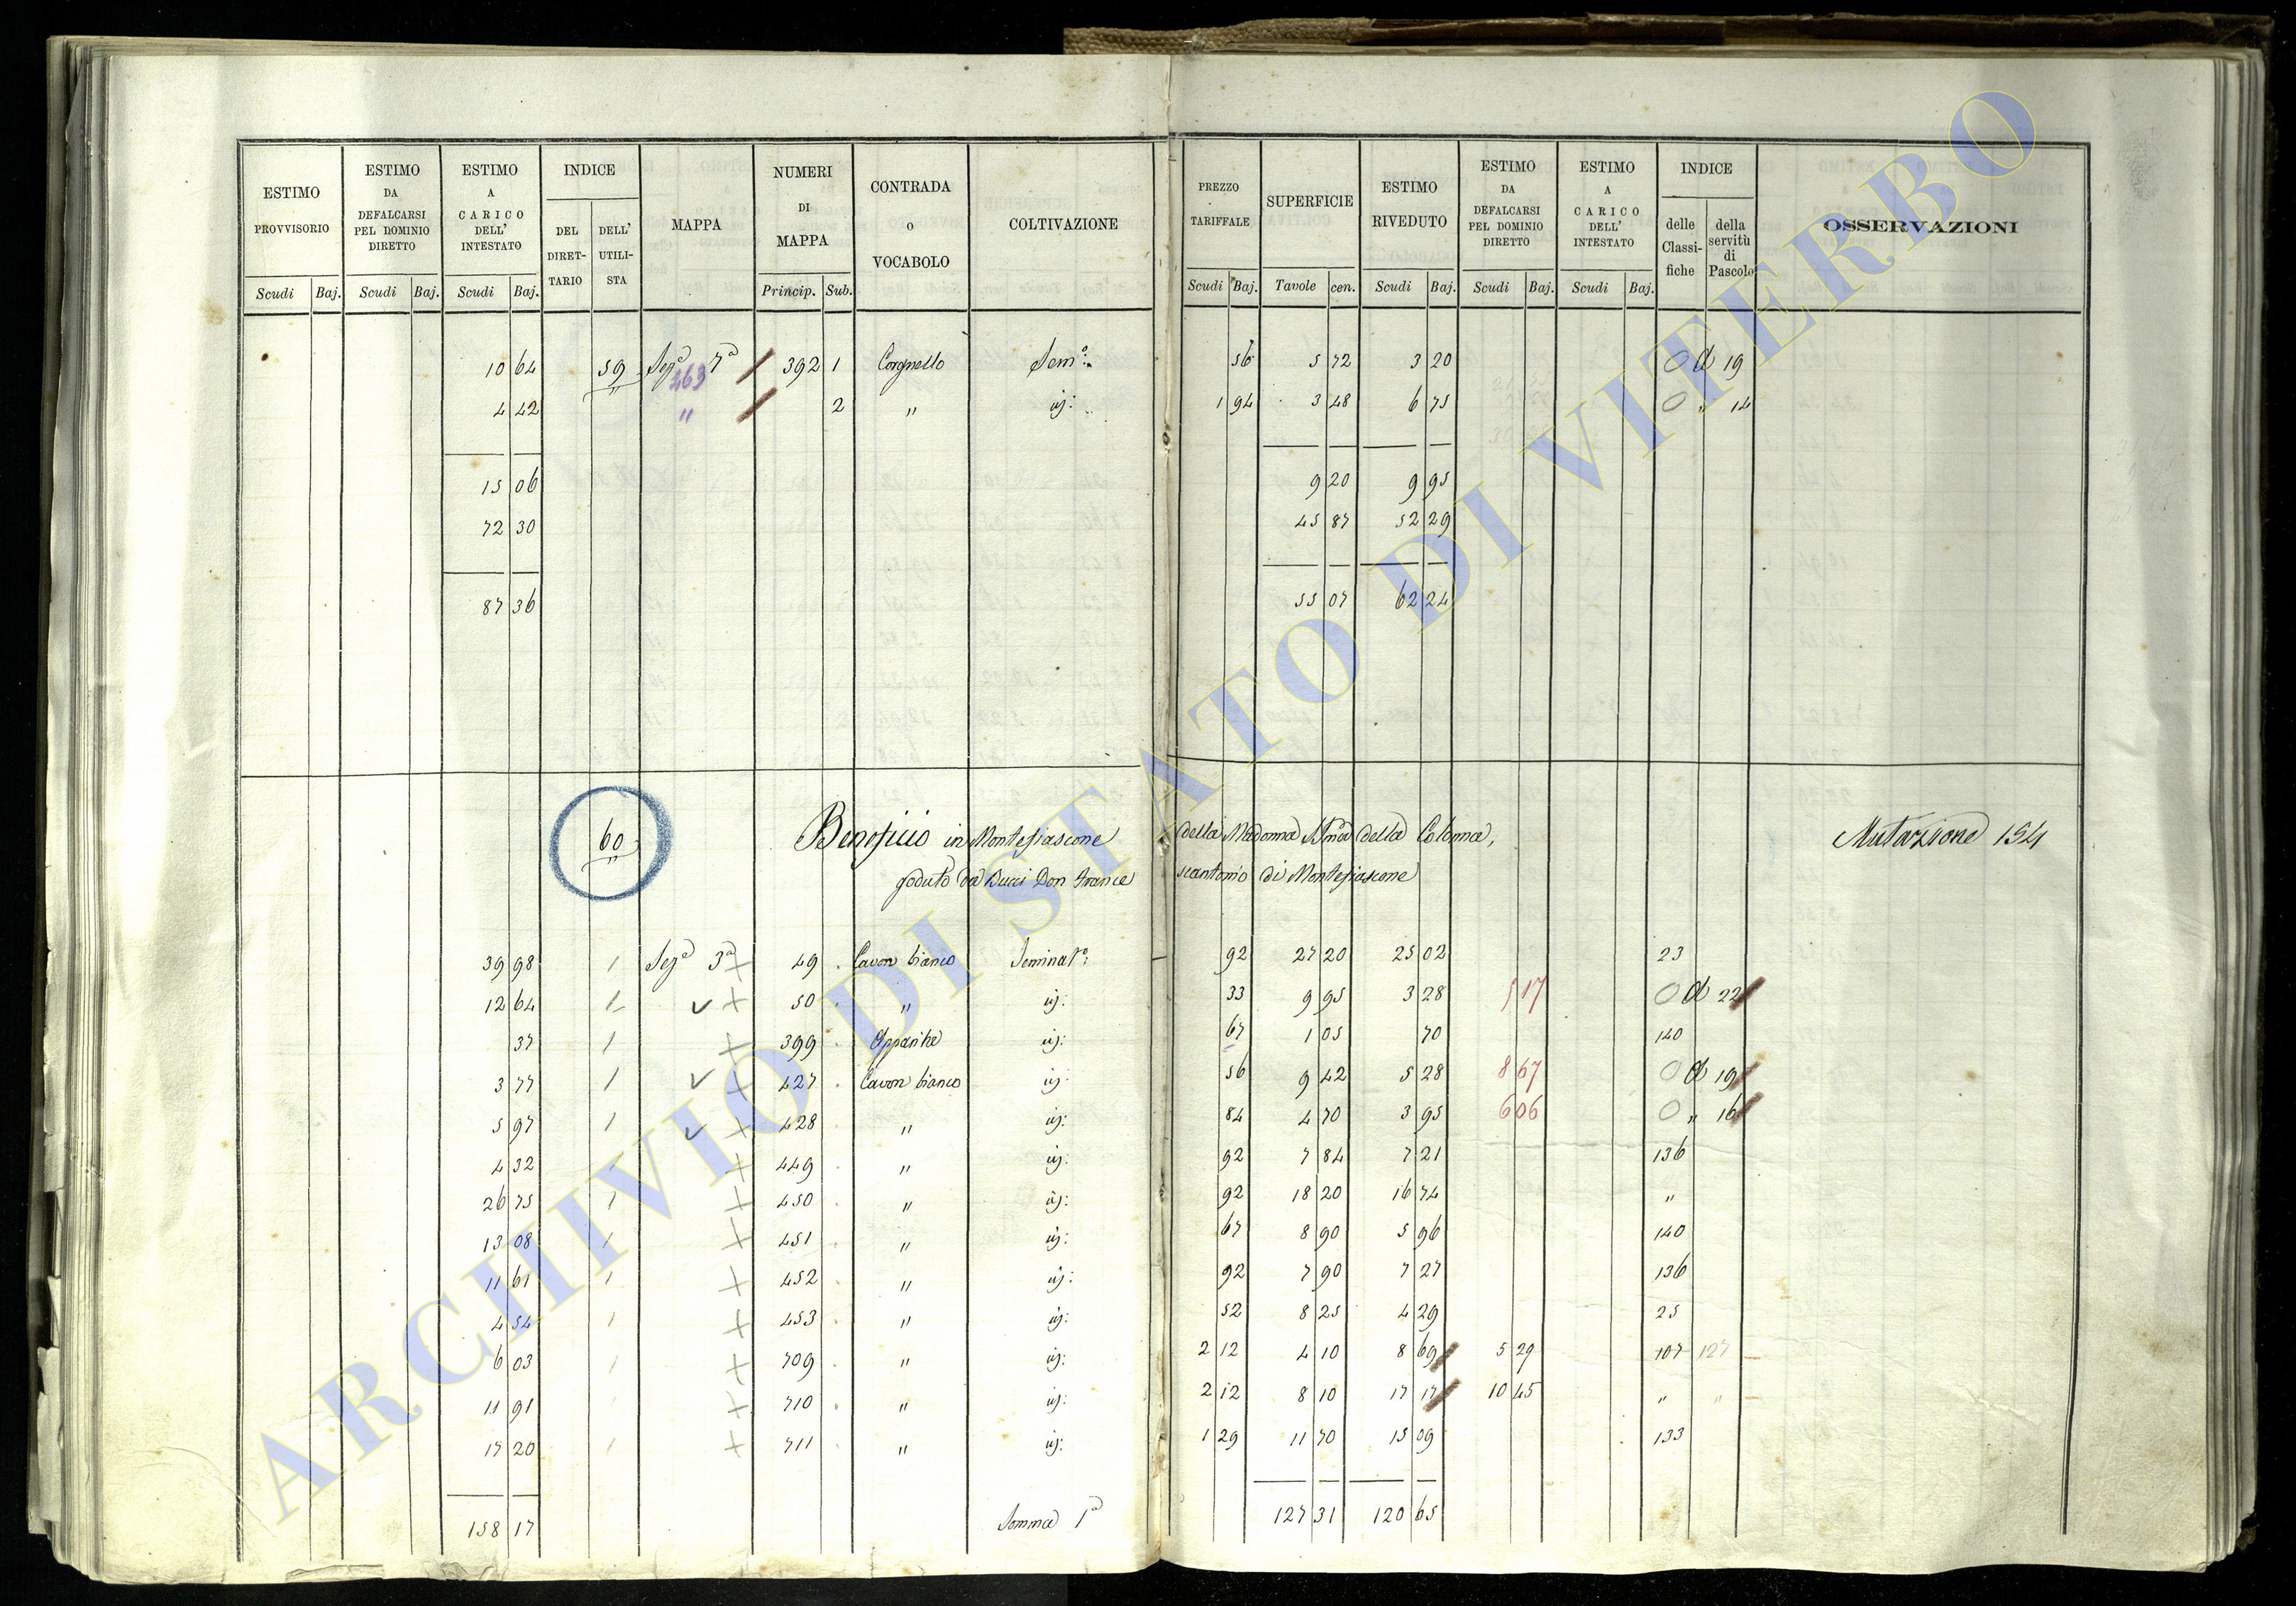 ESTIMO PROVVISORIO | ESTIMO DA DEFALCARSI PEL DOMINIO DIRETTO | ESTIMO A CARICO DELL' INTESTATO | INDICE | MAPPA | NUMERI DI MAPPA | CONTRADA o VOCABOLO | COLTIVAZIONE | PREZZO TARIFFALE | SUPERFICIE | ESTIMO RIVEDUTO | ESTIMO DA DEFALCARSI PEL DOMINIO DIRETTO | ESTIMO A CARICO DELL' INTESTATO | INDICE | OSSERVAZIONI
DEL DIRETTARIO | DELL' UTILISTA | delle Classifiche | della servitù di Pascolo
Scudi | Baj. | Scudi | Baj. | Scudi | Baj. | Princip. | Sub. | Scudi | Baj. | Tavole | cen. | Scudi | Baj. | Scudi | Baj. | Scudi | Baj.
10 64 | 59 | Sezª 7ª | 392 | 1 | Corgnello | Semº: | 56 | 5 72 | 3 20 | O d 19
" | 463
4 42 | " | 2 | " | id: | 1 94 | 3 48 | 6 75 | O " 14
15 06 | 9 20 | 9 95
72 30 | 45 87 | 52 29
87 36 | 55 07 | 62 24
60 | Beneficio in Montefiascone della Madonna SSma della Colonna, | Mutazione 154
"
goduto da Bucci Don Francescantonio di Montefiascone
39 98 | 1 | Sezª 3ª | 49 | Cavon bianco | Seminatº: | 92 | 27 20 | 25 02 | 23
12 64 | 1 | 50 | " | id: | 33 | 9 95 | 3 28 | 5 17 | O d 22
37 | 1 | 399 | id: | 67 | 1 05 | 70 | 140
3 77 | 1 | 427 | Cavon bianco | id: | 56 | 9 42 | 5 28 | 8 67 | O d 19
5 97 | 1 | 428 | " | id: | 84 | 4 70 | 3 95 | 6 06 | O " 16
4 32 | 1 | 449 | " | id: | 92 | 7 84 | 7 21 | 136
26 75 | 1 | 450 | " | id: | 92 | 18 20 | 16 74 | "
13 08 | 1 | 451 | " | id: | 67 | 8 90 | 5 96 | 140
11 61 | 1 | 452 | " | id: | 92 | 7 90 | 7 27 | 136
4 54 | 1 | 453 | " | id: | 52 | 8 25 | 4 29 | 25
6 03 | 1 | 709 | " | id: | 2 12 | 4 10 | 8 69 | 5 29 | 107 | 127
11 91 | 710 | " | id: | 2 12 | 8 10 | 17 17 | 10 45 | " | "
17 20 | 1 | 711 | " | id: | 1 29 | 11 70 | 15 09 | 133
158 17 | Somma 1ª | 127 31 | 120 65
ARCHIVIO DI STATO DI VITERBO